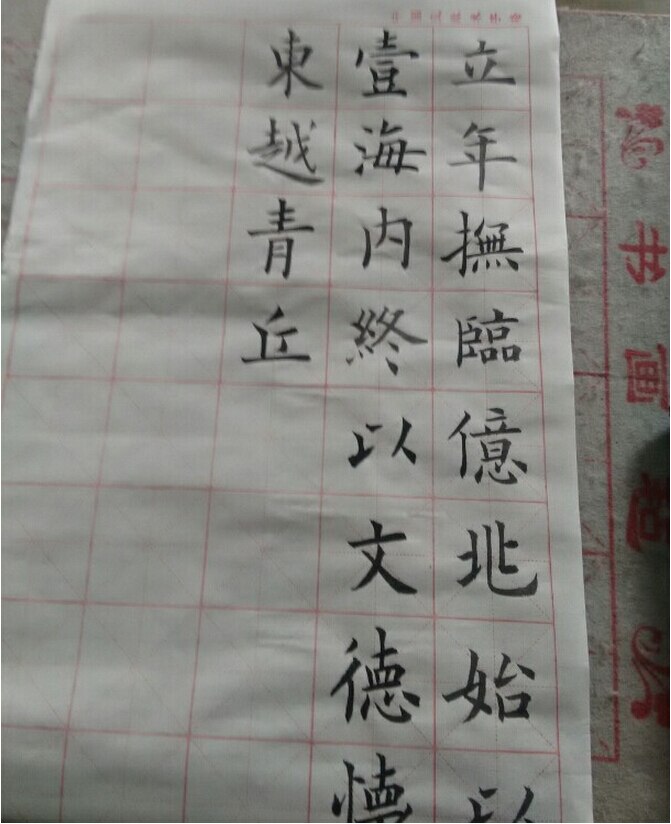 立年撫臨億兆始以
壹海内終以文德懷
東越青丘
书画